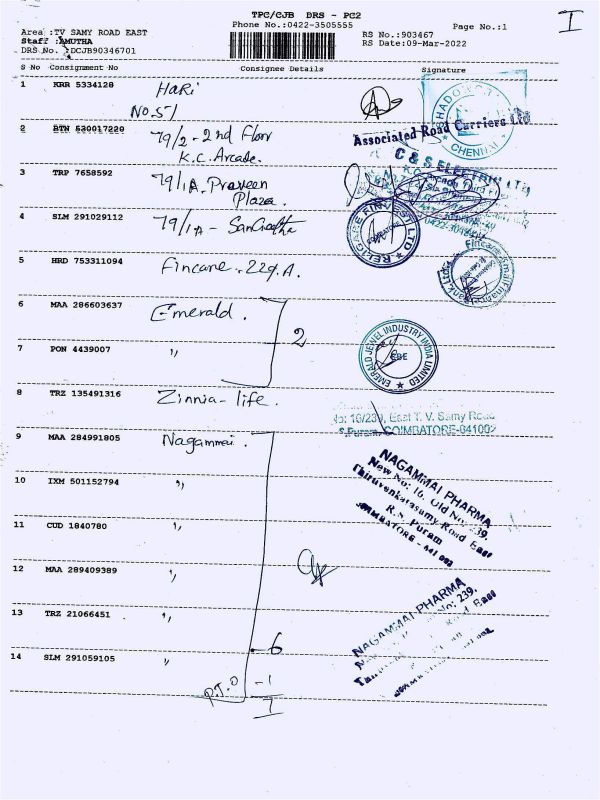 TPC/CJB DRS - PC2
I
Phone No.:0422-3505555
Page No.:1
Area :TV SAMY ROAD EAST
Staff :AMUTHA
DRS No. :DCJB90346701
RS No.:903467
RS Date:09-Mar-2022
S No Consignment No Consignee Details Signature
1 KRR 5334128 HaRi
No.51
2 BTN 530017220 79/2 - 2nd Floor
K.C. Arcade.
Associated Road Carriers Ltd
CHENNAI
3 TRP 7658592 79/1A. Praveen
Plaza.
C & S ELECTRIC LTD
4 SLM 291029112 79/1A - Sangeetha
RELIGARE FINVEST LTD
COIMBATORE
5 HRD 753311094 Fincare. 229.A.
Fincare Small Finance Bank Ltd
6 MAA 286603637 Emerald.
2
7 PON 4439007 "
EMERALD JEWEL INDUSTRY INDIA LIMITED
CBE
8 TRZ 135491316 Zinnia - life.
No: 16/239, East T. V. Samy Road
R.S.Puram, COIMBATORE-641002
9 MAA 284991805 Nagammai.
NAGAMMAI PHARMA
New No: 16, Old No: 239,
Thiruvenkatasamy Road East
R.S. Puram
COIMBATORE - 641 002
10 IXM 501152794 "
11 CUD 1840780 "
12 MAA 289409389 "
13 TRZ 21066451 "
NAGAMMAI PHARMA
No: 239,
Road East
14 SLM 291059105 "
- 6
P.T.O - 1
7